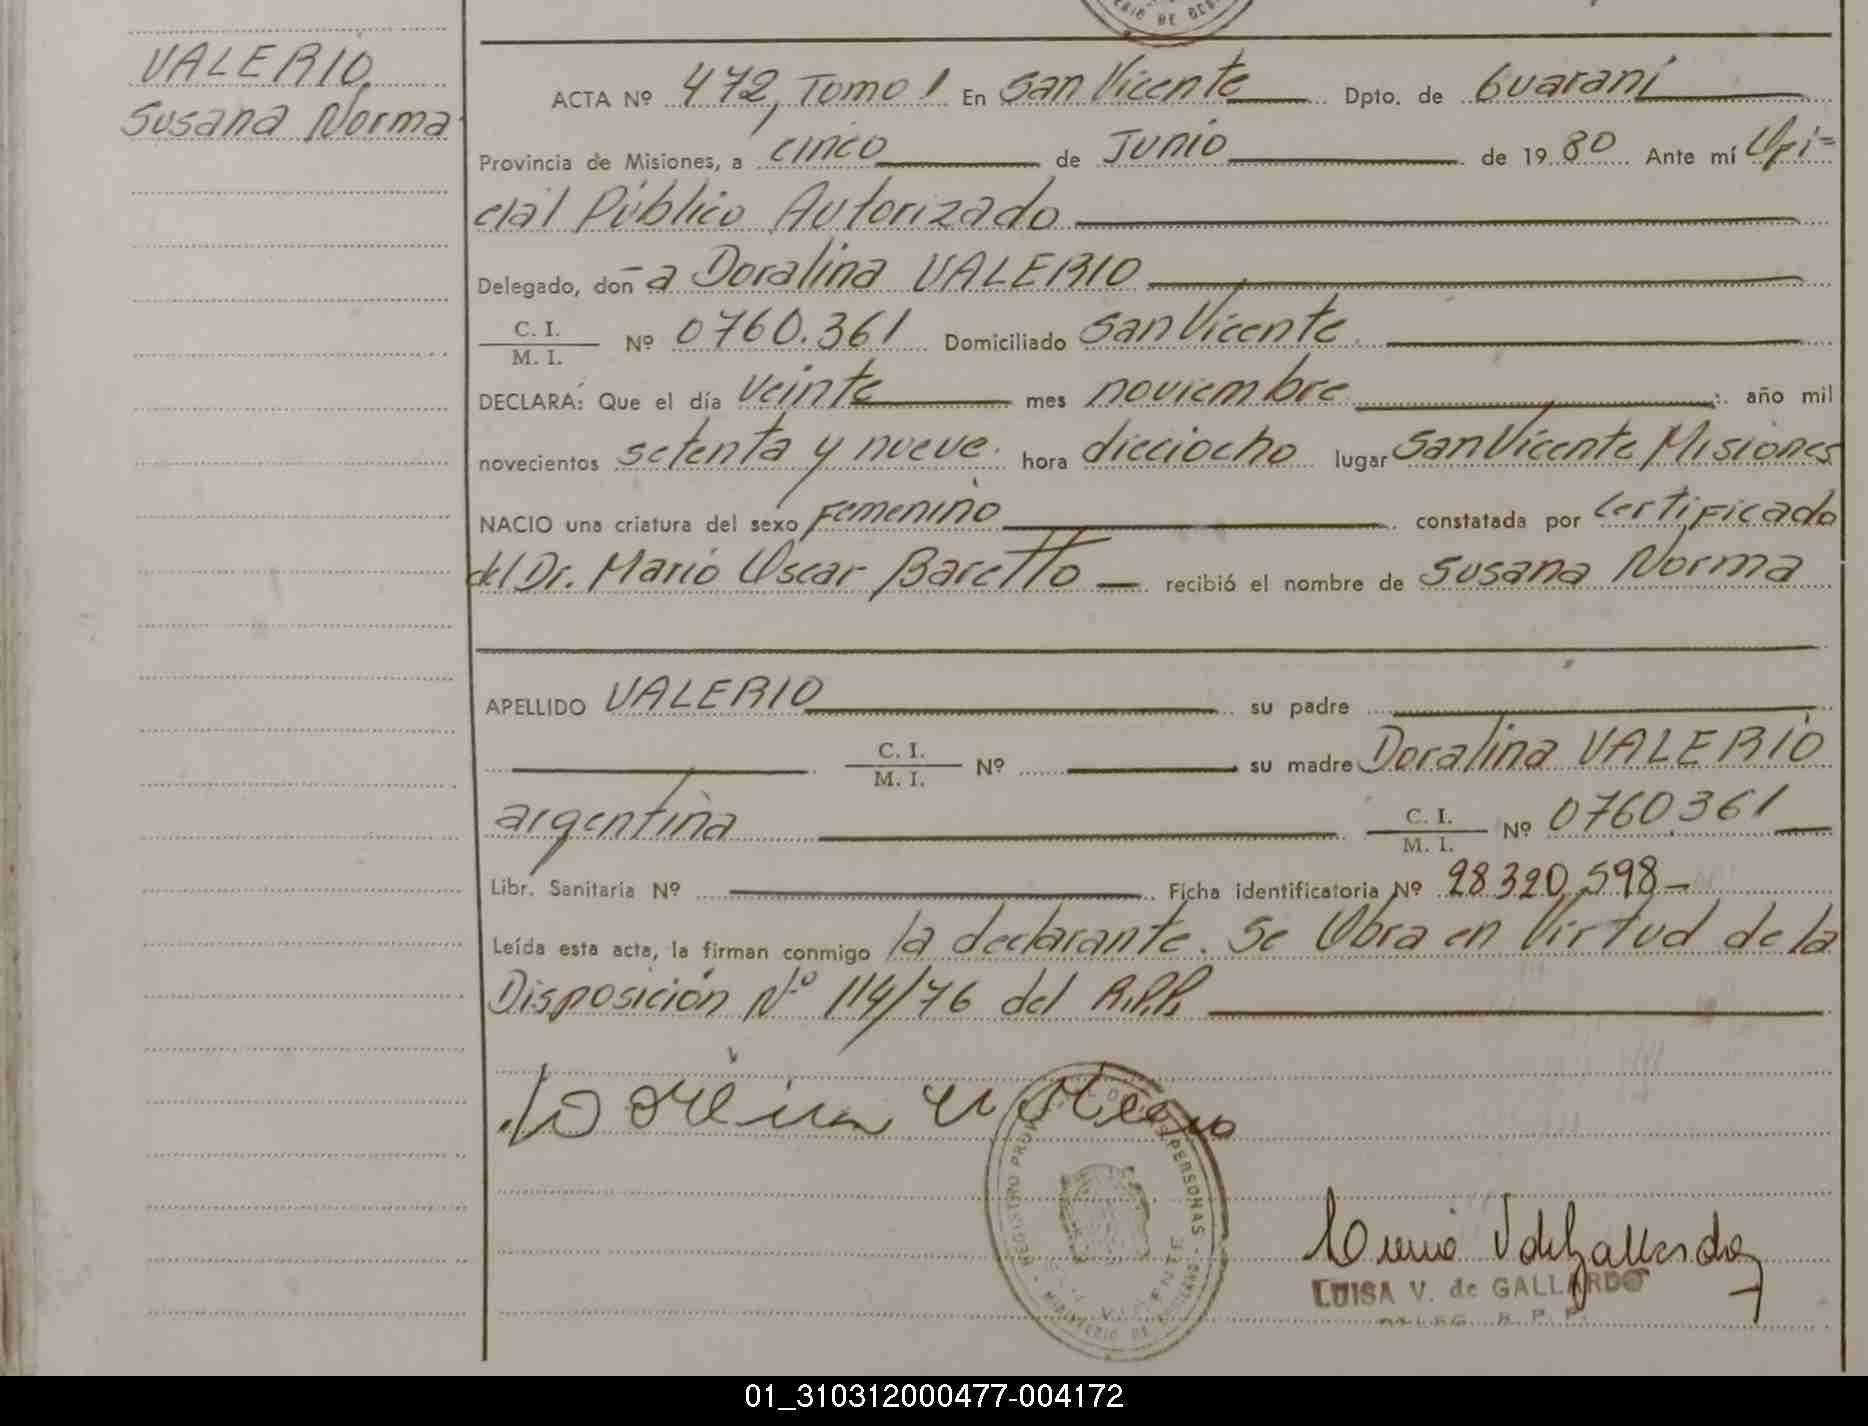 RIO DE GOB
VALERIO
Susana Norma
ACTA Nº 472, Tomo 1 En San Vicente Dpto. de Guaraní
Provincia de Misiones, a cinco de Junio de 1980 Ante mí Ofi=
cial Público Autorizado
Delegado, don-a Doralina VALERIO
C. I.
M. I.
Nº 0760.361 Domiciliado San Vicente
DECLARÁ: Que el día veinte mes noviembre año mil
novecientos setenta y nueve. hora dieciocho lugar San Vicente Misiones
NACIO una criatura del sexo Femenino constatada por Certificado
del Dr. Mario Oscar Baretto recibió el nombre de Susana Norma
APELLIDO VALERIO su padre
C. I.
M. I.
Nº su madre Doralina VALERIO
argentina
C. I.
M. I.
Nº 0760.361
Libr. Sanitaria Nº Ficha identificatoria Nº 28320,598-
Leída esta acta, la firman conmigo la declarante. Se Obra en Virtud de la
Disposición Nº 114/76 del R.P.P.
REGISTRO PROV DE LAS PERSONAS
MINISTERIO DE GOBIERNO
VICENTE
LUISA V. de GALLARDO
DELEG. R. P. P.
01_310312000477-004172